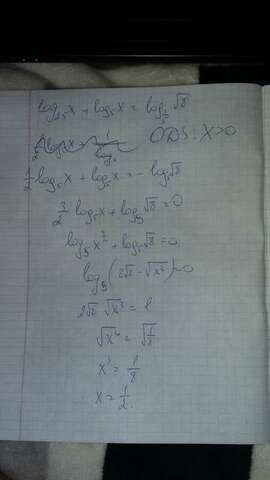 log₂₅x + log₅x = log_{1/5} √8
ODS: x>0
1/2 log₅x + log₅x = - log₅√8
3/2 log₅x + log₅√8 = 0
log₅ x^{3/2} + log₅√8 = 0
log₅(2√2 · √x³) = 0
2√2 √x³ = 1
x³ = 1/8
x = 1/2